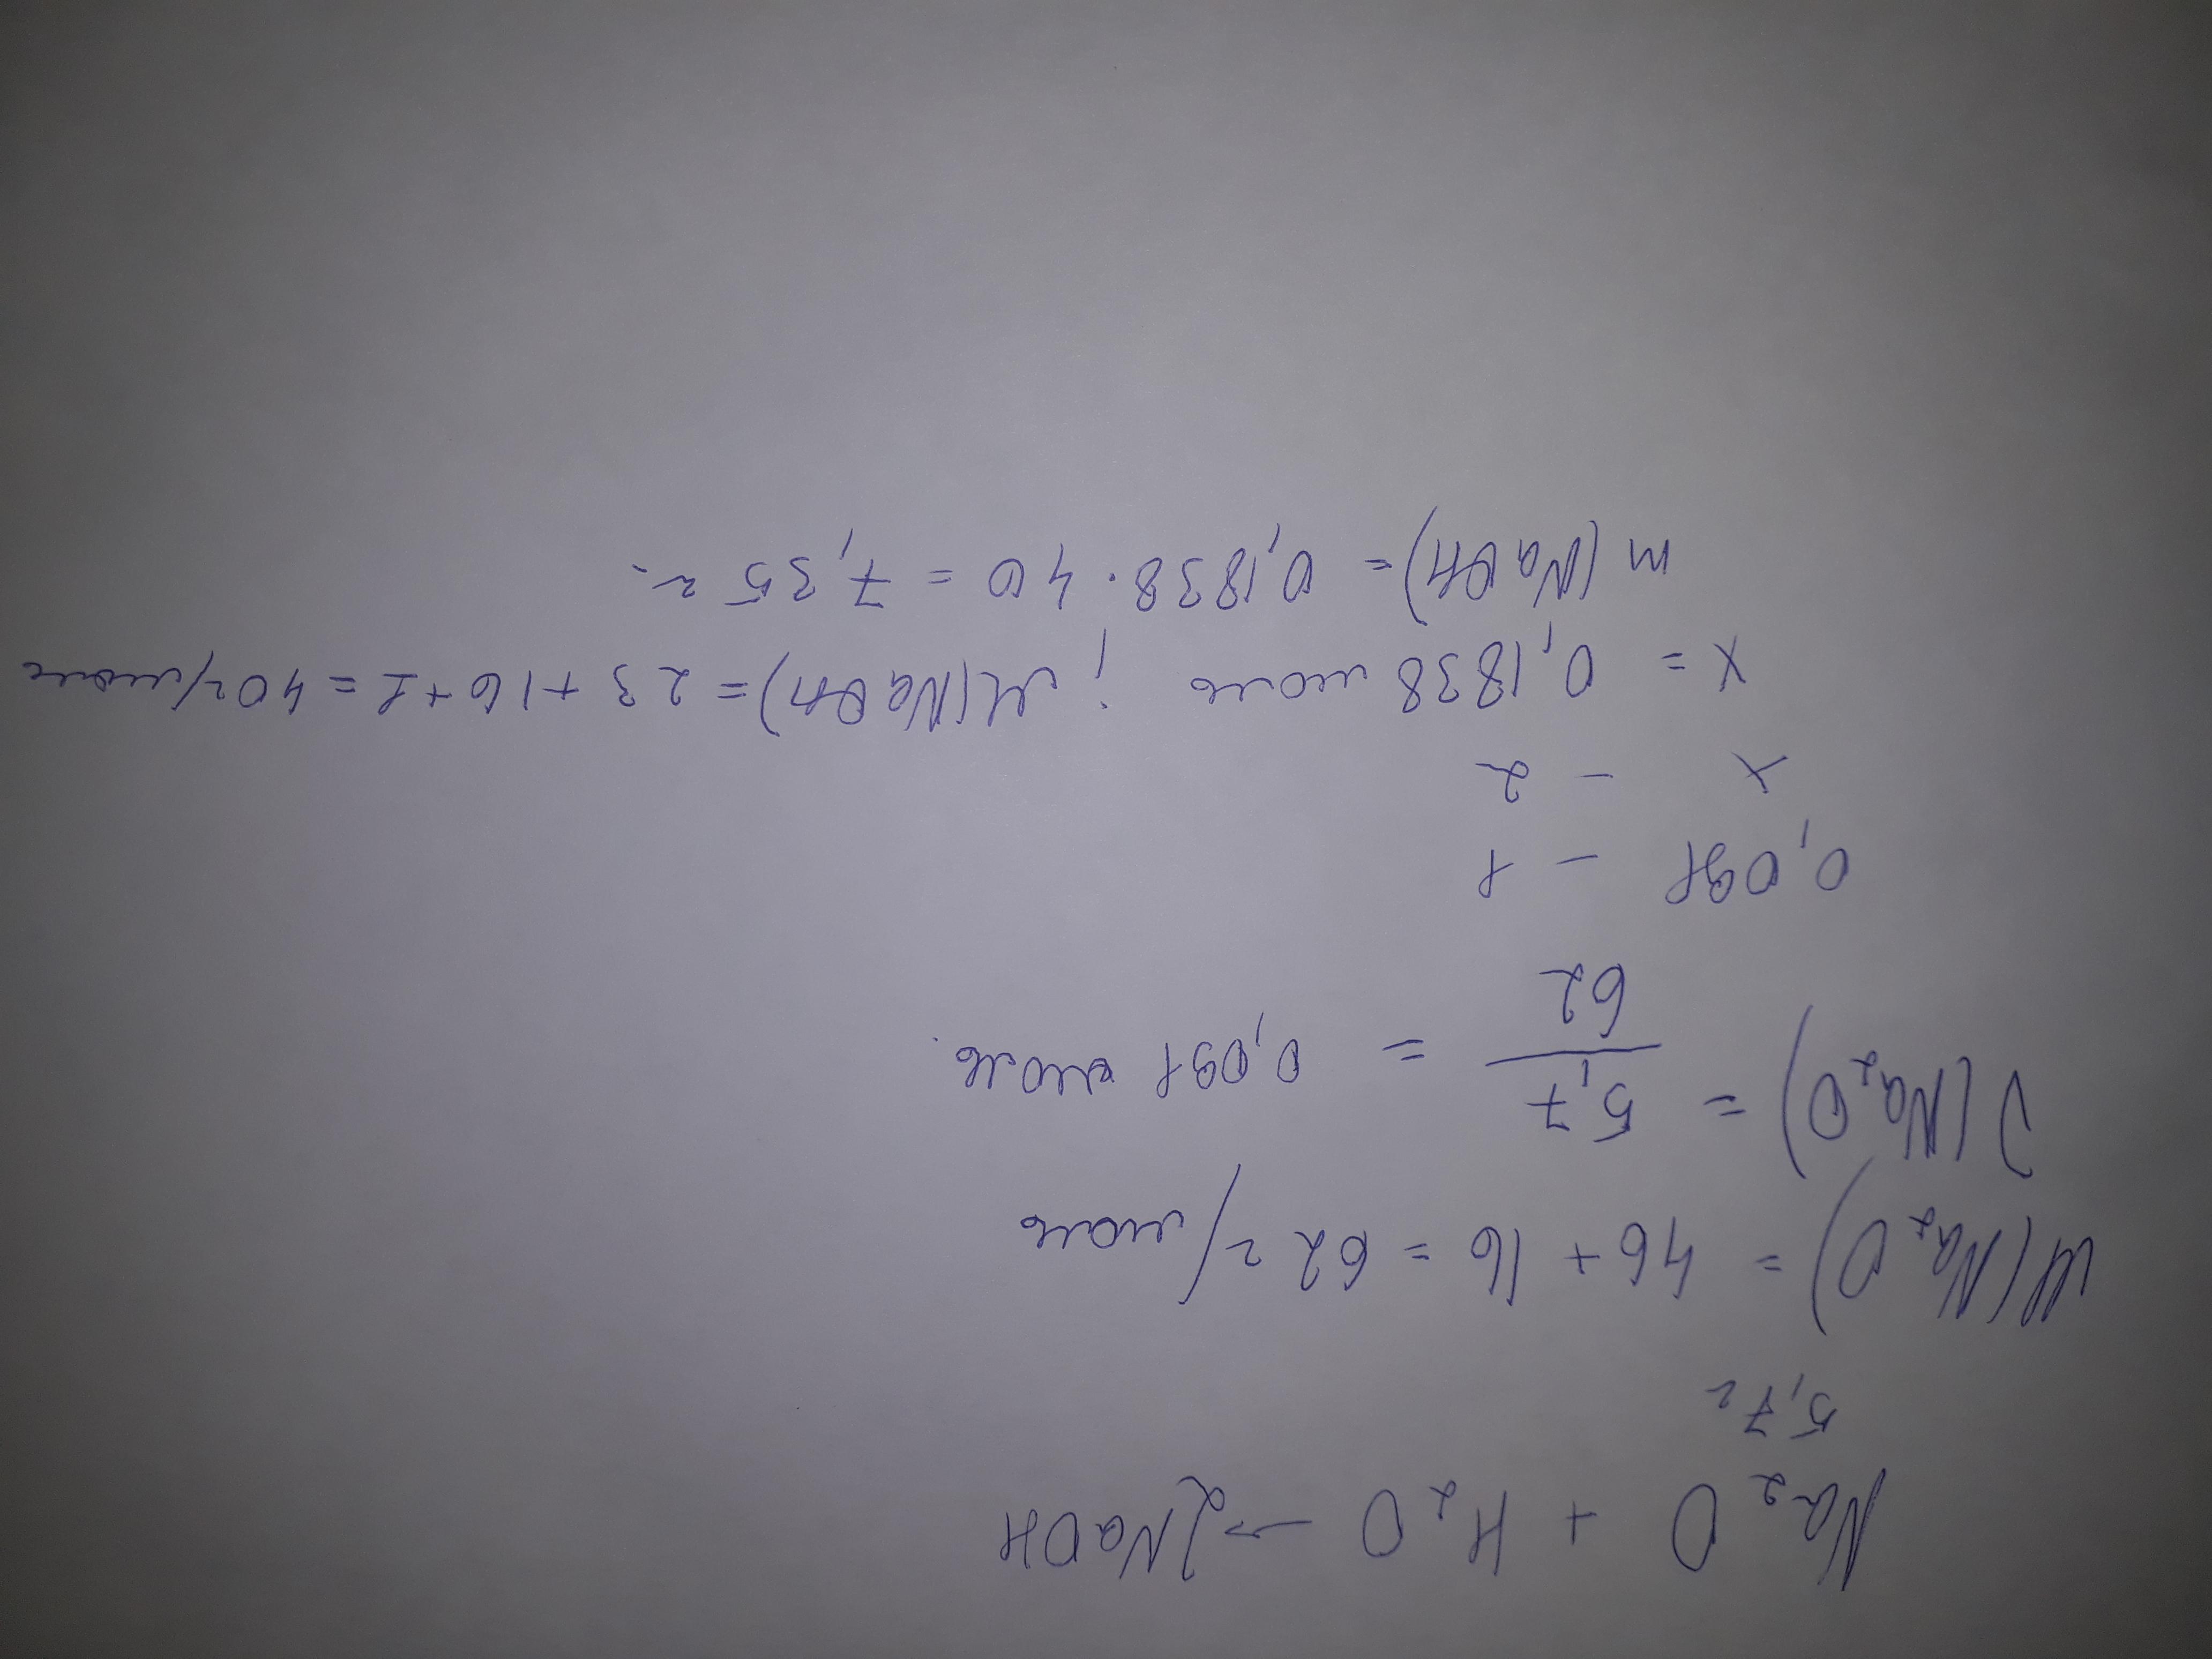 Na₂O + H₂O → 2NaOH
5,7г
M(Na₂O) = 46 + 16 = 62 г/моль
ν(Na₂O) = 5,7/62 = 0,091 моль.
0,091 - 1
x - 2
x = 0,1838 моль ; M(NaOH) = 23 + 16 + 1 = 40 г/моль
m(NaOH) = 0,1838 · 40 = 7,35 г.